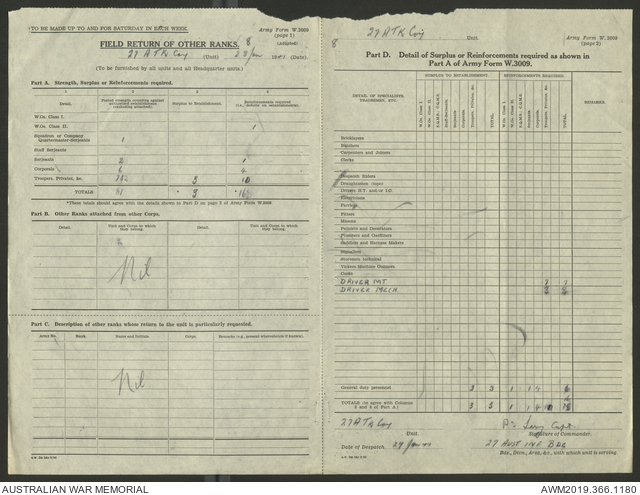 TO BE MADE UP TO AND FOR SATURDAY IN EACH WEEK.
Army Form W.3009
(page 1)
(Adapted)
FIELD RETURN OF OTHER RANKS. 8
27 ATK Coy (Unit) (Date)
(To be furnished by all units and all Headquarter units.)
Part A. Strength, Surplus or Reinforcements required.
1 2 3 4
Detail. Surplus to Establishment.
W.Os. Class I.
W.Os. Class II. 1
Squadron or Company Quartermaster-Serjeants 1
Staff Serjeants
Serjeants 2 1
Corporals 6 4
Troopers, Privates, &c. 3 10
TOTALS 3
*These totals should agree with the details shown in Part D on page 2 of Army Form W.3009
Part B. Other Ranks attached from other Corps.
Detail. Unit and Corps to which they belong. Detail. Unit and Corps to which they belong.
Nil
Part C. Description of other ranks whose return to the unit is particularly requested.
Army No. Rank. Name and Initials Corps. Remarks (e.g., present whereabouts if known).
Nil
27 ATK Coy
Unit.
Army Form W.3009
(page 2)
8
Part D. Detail of Surplus or Reinforcements required as shown in
Part A of Army Form W.3009.
DETAIL OF SPECIALISTS, TRADESMEN, ETC. SURPLUS TO ESTABLISHMENT. REINFORCEMENTS REQUIRED. REMARKS.
W.Os. Class I. W.Os. Class II. Staff-Serjeants. Serjeants. Corporals. Troopers, Privates, &c. TOTAL.
Bricklayers
Butchers
Carpenters and Joiners
Clerks
Despatch Riders
Draughtsmen (topo)
Drivers H.T. and/or I.C.
Electricians
Farriers
Fitters
Masons
Painters and Decorators
Plumbers and Gasfitters
Saddlers and Harness Makers
Signallers
Storemen technical
Vickers Machine Gunners
Cooks
DRIVER MT
DRIVER MECH
General duty personnel 3 3 1 1 4
TOTALS (to agree with Columns 3 and 4 of Part A.) 3 3 1 1 4
27 ATK Coy
Unit. Signature of Commander.
Date of Despatch 29 Jan 27 AUST INF BDE
Bde., Divn., Area, &c., with which unit is serving.
AUSTRALIAN WAR MEMORIAL AWM2019.366.1180